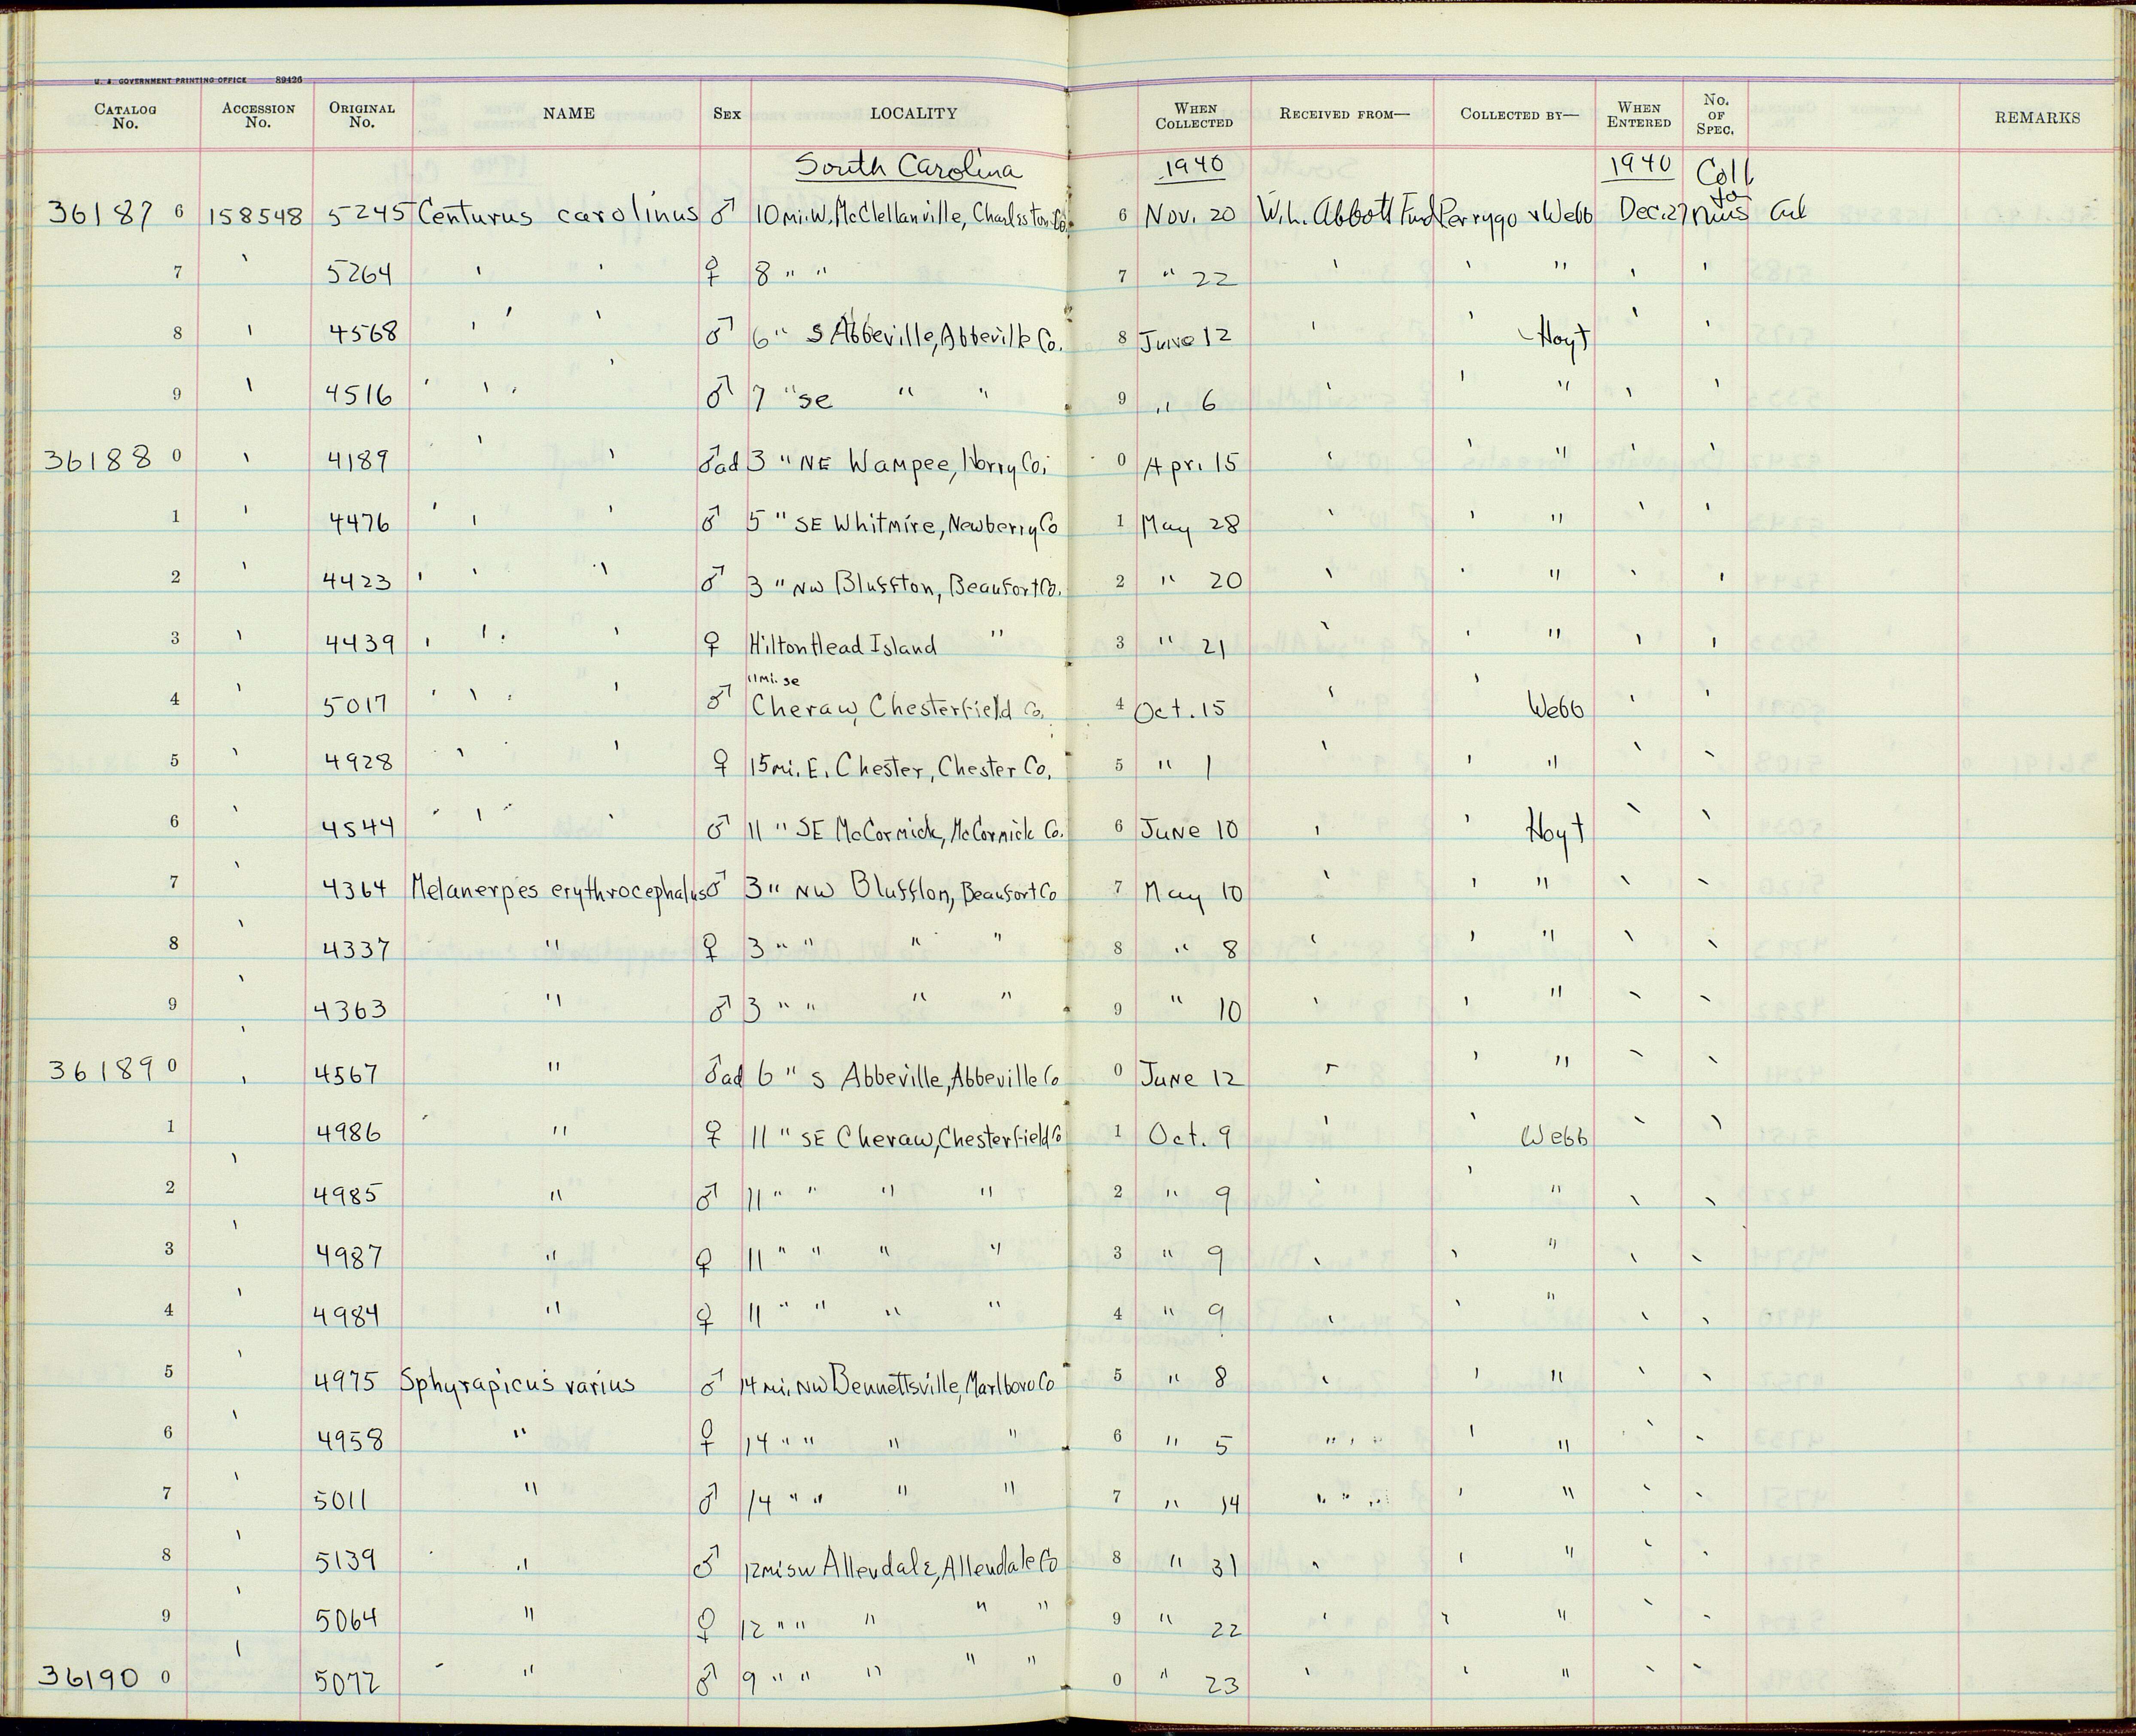 U. S. GOVERNMENT PRINTING OFFICE 89426
CATALOG No. ACCESSION No. ORIGINAL No. NAME SEX LOCALITY WHEN COLLECTED RECEIVED FROM— COLLECTED BY— WHEN ENTERED No. OF SPEC. REMARKS
South Carolina 1940 1940 Coll
36187 6 158548 5245 Centurus carolinus ♂ 10 mi. W. McClellanville, Charleston Co. 6 Nov. 20 W. L. Abbott Fund Perrygo & Webb Dec. 27 to
7 ' 5264 ' ' ♀ 8 " " 7 " 22 ' ' " ' '
8 ' 4568 ' ' ' ♂ 6 " S Abbeville, Abbeville Co. 8 June 12 ' ' Hoyt ' '
9 ' 4516 ' ' ' ♂ 7 " SE " " 9 " 6 ' ' " ' '
36188 0 ' 4189 ' ' ♂ad 3 " NE Wampee, Horry Co. 0 Apr. 15 ' ' " ' '
1 ' 4476 ' ' ' ♂ 5 " SE Whitmire, Newberry Co 1 May 28 ' ' " ' '
2 ' 4423 ' ' ' ♂ 3 " NW Bluffton, Beaufort Co. 2 " 20 ' ' " ' '
3 ' 4439 ' ' ' ♀ Hilton Head Island " 3 " 21 ' ' " ' '
11 mi. SE
4 ' 5017 ' ' ' ♂ Cheraw, Chesterfield Co. 4 Oct. 15 ' ' Webb ' '
5 ' 4928 ' ' ' ♀ 15 mi. E. Chester, Chester Co. 5 " 1 ' ' " ' '
6 ' 4544 ' ' ' ♂ 11 " SE McCormick, McCormick Co. 6 June 10 ' ' Hoyt ' '
7 ' 4364 Melanerpes erythrocephalus ♂ 3 " NW Bluffton, Beaufort Co 7 May 10 ' ' " ' '
8 ' 4337 " ♀ 3 " " " " 8 " 8 ' ' " ' '
9 ' 4363 " ♂ 3 " " " " 9 " 10 ' ' " ' '
36189 0 ' 4567 " ♂ad 6 " S Abbeville, Abbeville Co 0 June 12 ' ' " ' '
1 ' 4986 " ♀ 11 " SE Cheraw, Chesterfield Co 1 Oct. 9 ' ' Webb ' '
2 ' 4985 " ♂ 11 " " " " 2 " 9 ' ' " ' '
3 ' 4987 " ♀ 11 " " " " 3 " 9 ' ' " ' '
4 ' 4984 " ♀ 11 " " " " 4 " 9 ' ' " ' '
5 ' 4975 Sphyrapicus varius ♂ 14 mi. NW Bennettsville, Marlboro Co 5 " 8 ' ' " ' '
6 ' 4958 " ♀ 14 " " " " 6 " 5 " ' " ' " ' '
7 ' 5011 " ♂ 14 " " " " 7 " 14 " " " ' " ' '
8 ' 5139 " ♂ 12 mi SW Allendale, Allendale Co 8 " 31 ' ' " ' '
9 ' 5064 " ♀ 12 " " " " " 9 " 22 ' ' " ' '
36190 0 ' 5072 " ♂ 9 " " " " " 0 " 23 ' ' " ' '